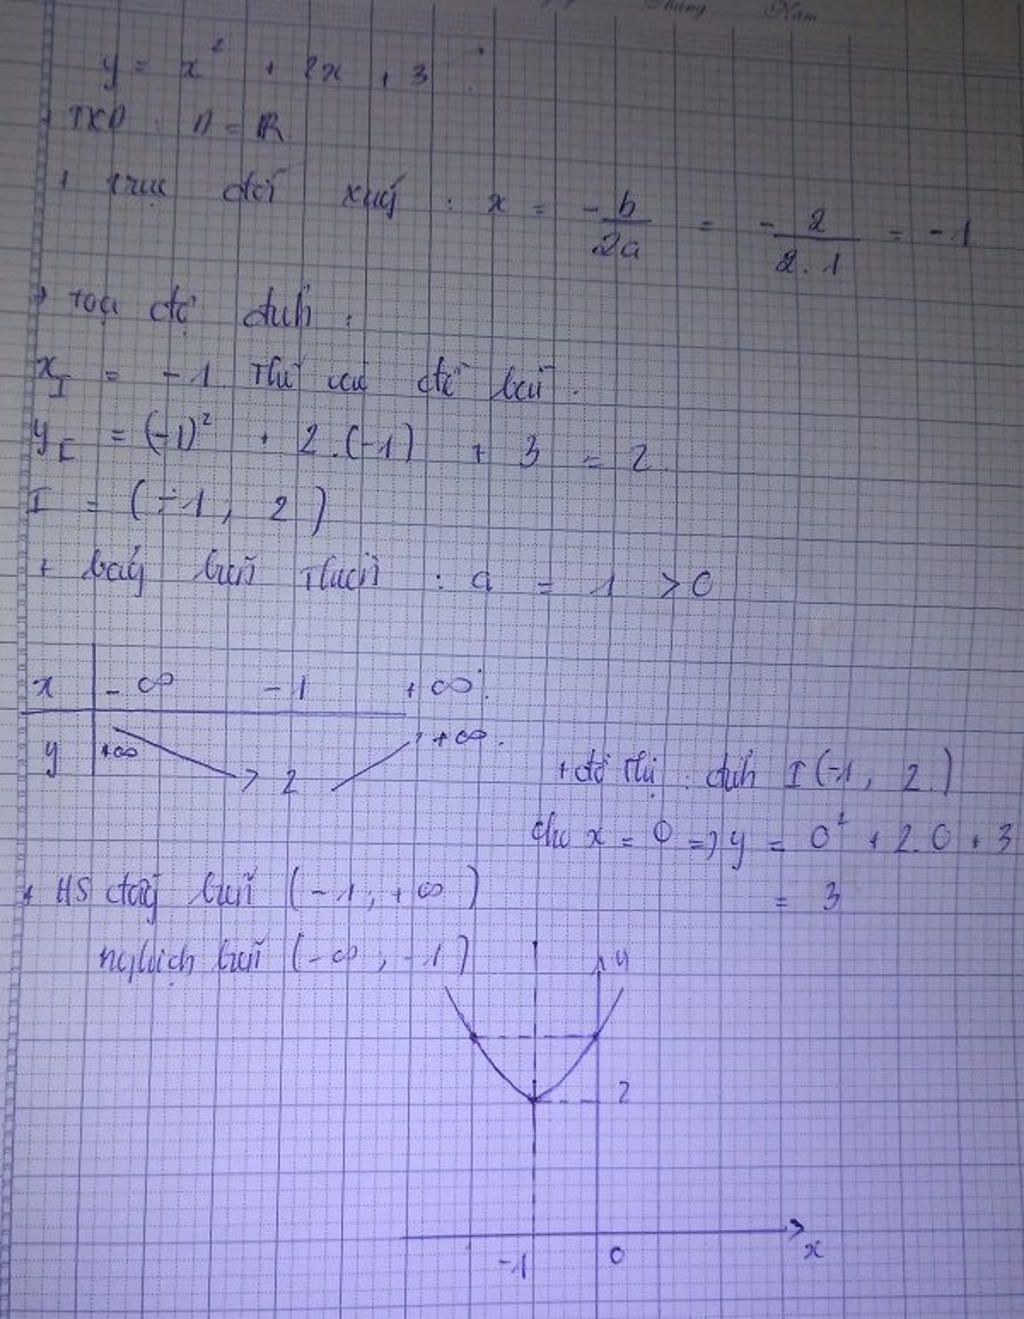 Tháng Năm
y = x² + 2x + 3
+ TXĐ : D = R
+ trục đối xứng : x = -b/2a = -2/2.1 = -1
+ toạ độ đỉnh :
x_I = -1 Thế vào đề bài.
y_I = (-1)² + 2.(-1) + 3 = 2
I = (-1, 2)
+ bảng biến thiên : a = 1 > 0
x -∞ -1 +∞
y +∞ 2 +∞
+ đồ thị : đỉnh I(-1, 2)
cho x = 0 => y = 0² + 2.0 + 3
= 3
+ HS đồng biến (-1; +∞)
nghịch biến (-∞; -1)
y
2
-1 0 x